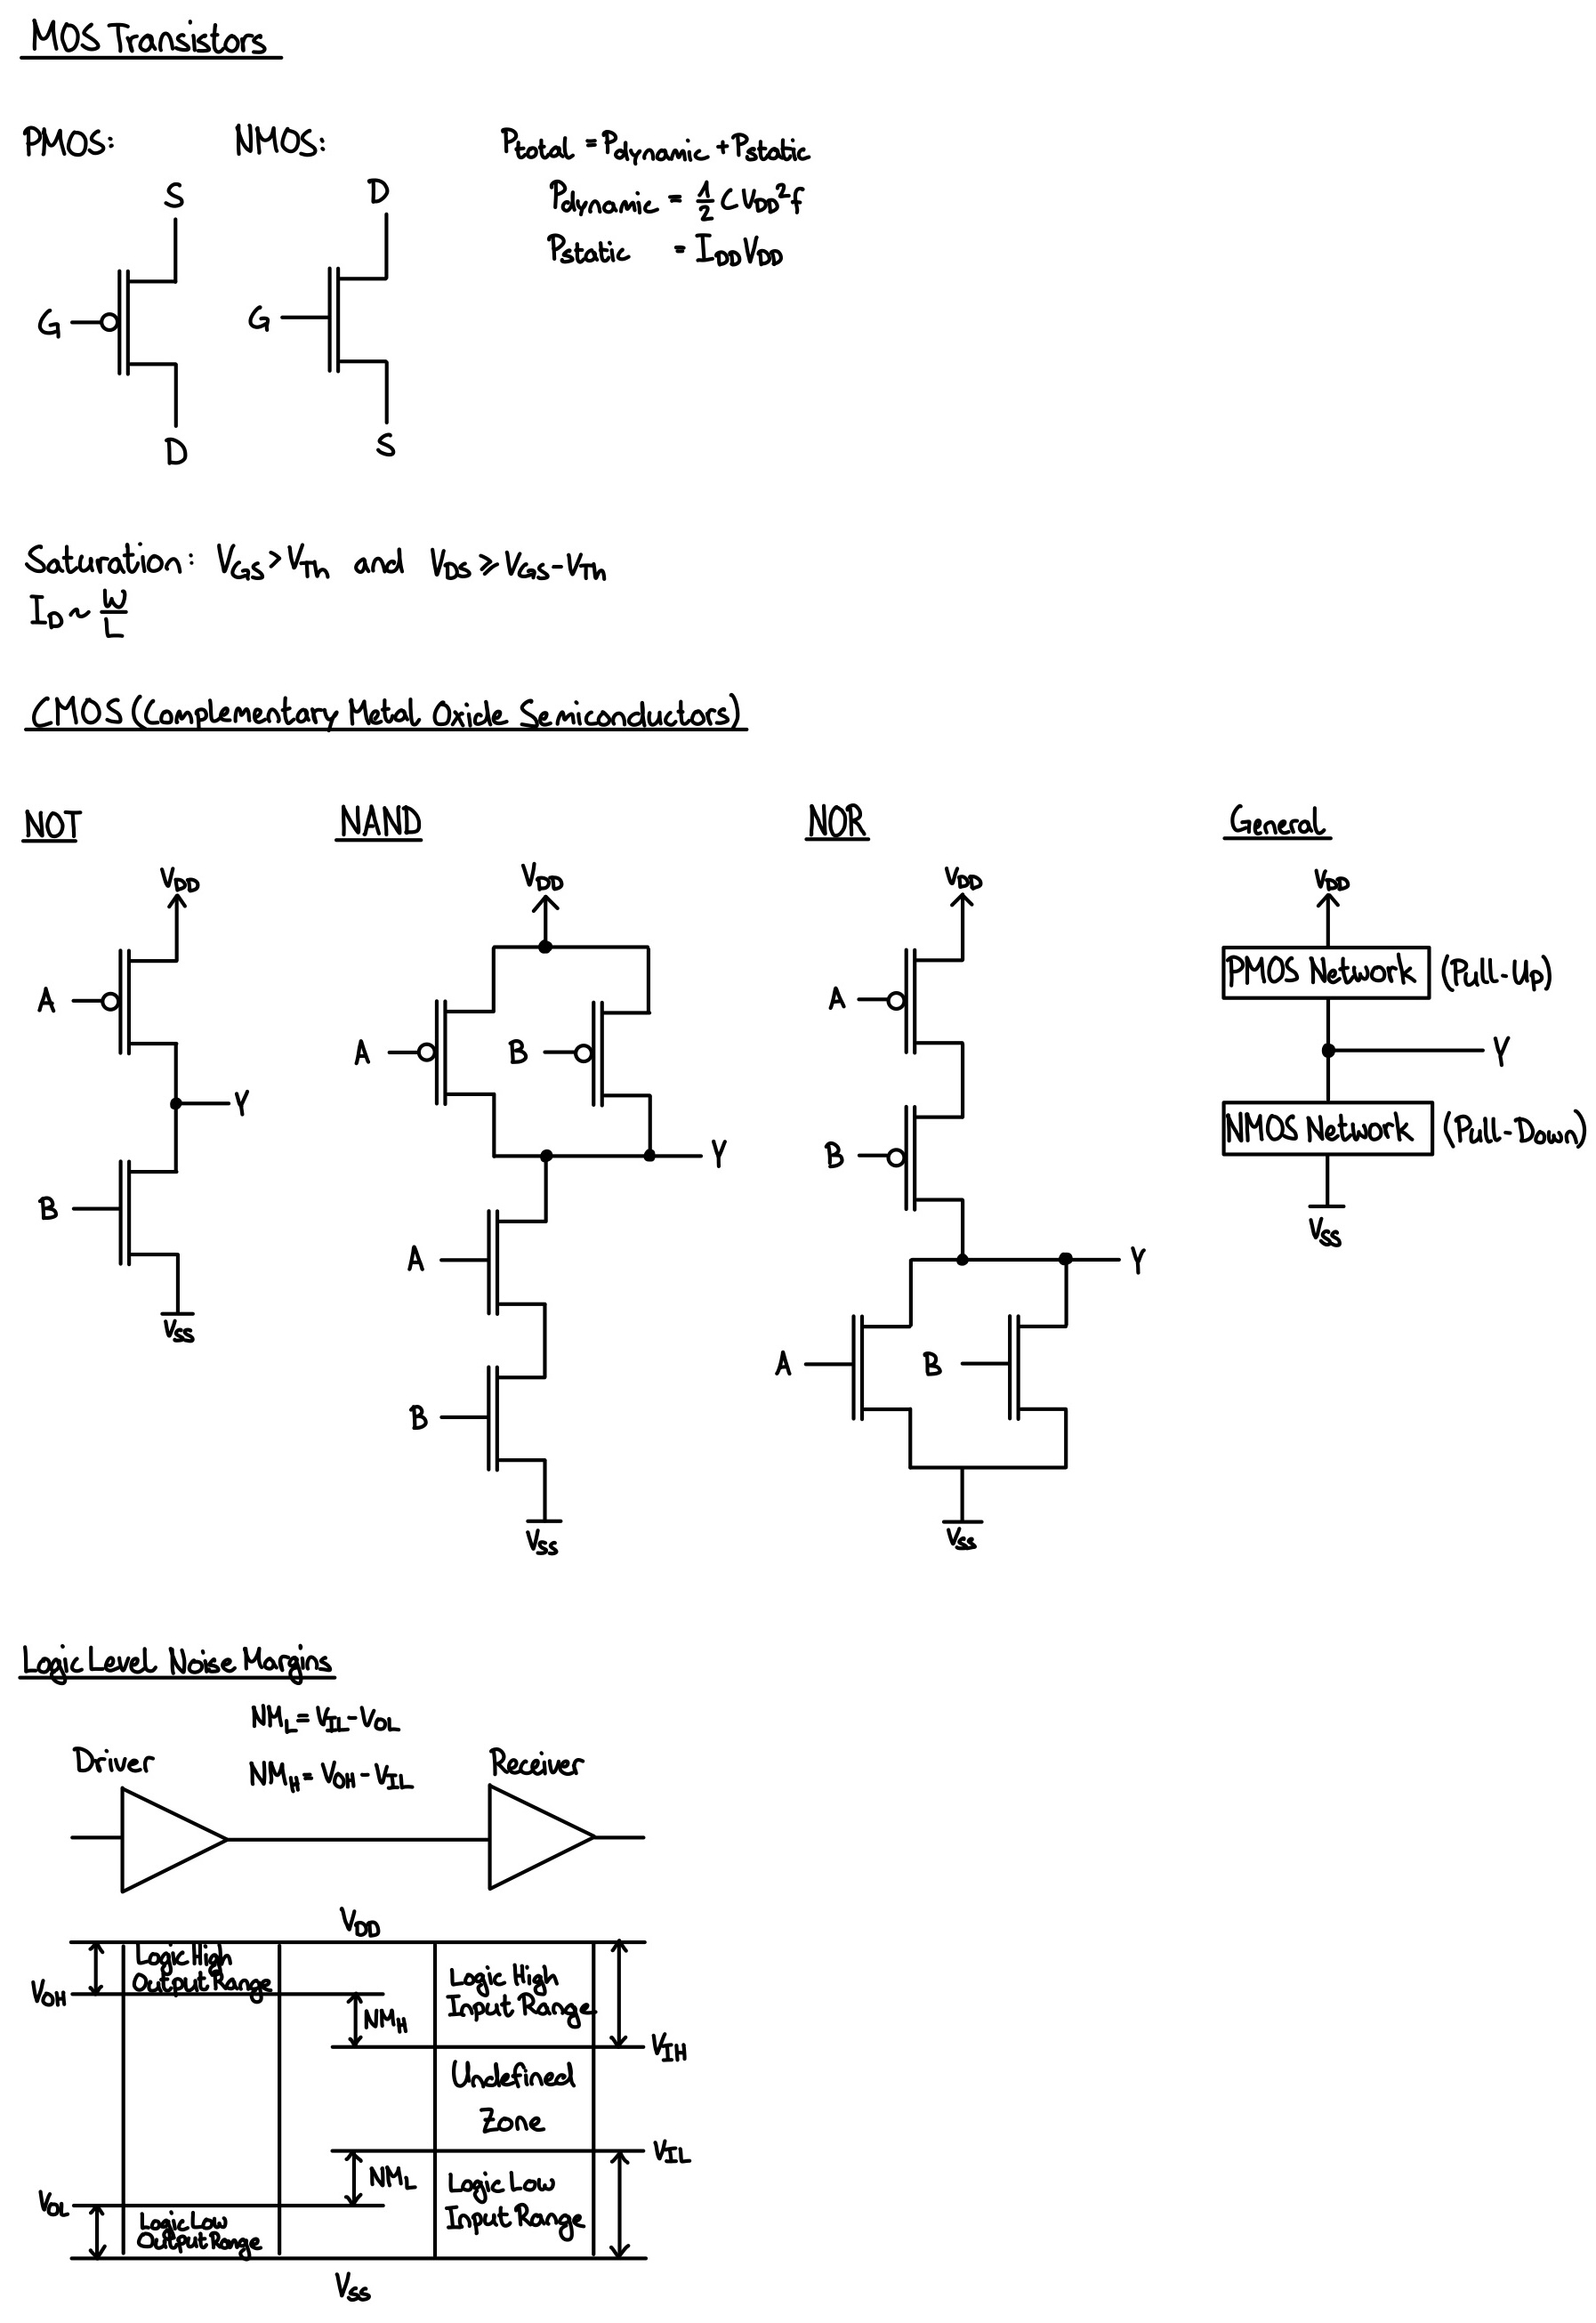 MOS Transistors
PMOS:
NMOS:
P_total = P_dynamic + P_static
P_dynamic = 1/2 C V_DD² f
P_static = I_DD V_DD
S
G
D
D
G
S
Saturation: V_GS > V_Th and V_DS ≥ V_GS - V_Th
I_D ~ W/L
CMOS (Complementary Metal Oxide Semiconductors)
NOT
V_DD
A
Y
B
V_SS
NAND
V_DD
A
B
Y
A
B
V_SS
NOR
V_DD
A
B
Y
A
B
V_SS
General
V_DD
PMOS Network (Pull-Up)
Y
NMOS Network (Pull-Down)
V_SS
Logic Level Noise Margins
NM_L = V_IL - V_OL
NM_H = V_OH - V_IL
Driver
Receiver
V_DD
Logic High
Output Range
V_OH
NM_H
Logic High
Input Range
V_IH
Undefined
Zone
V_IL
NM_L
Logic Low
Input Range
V_OL
Logic Low
Output Range
V_SS